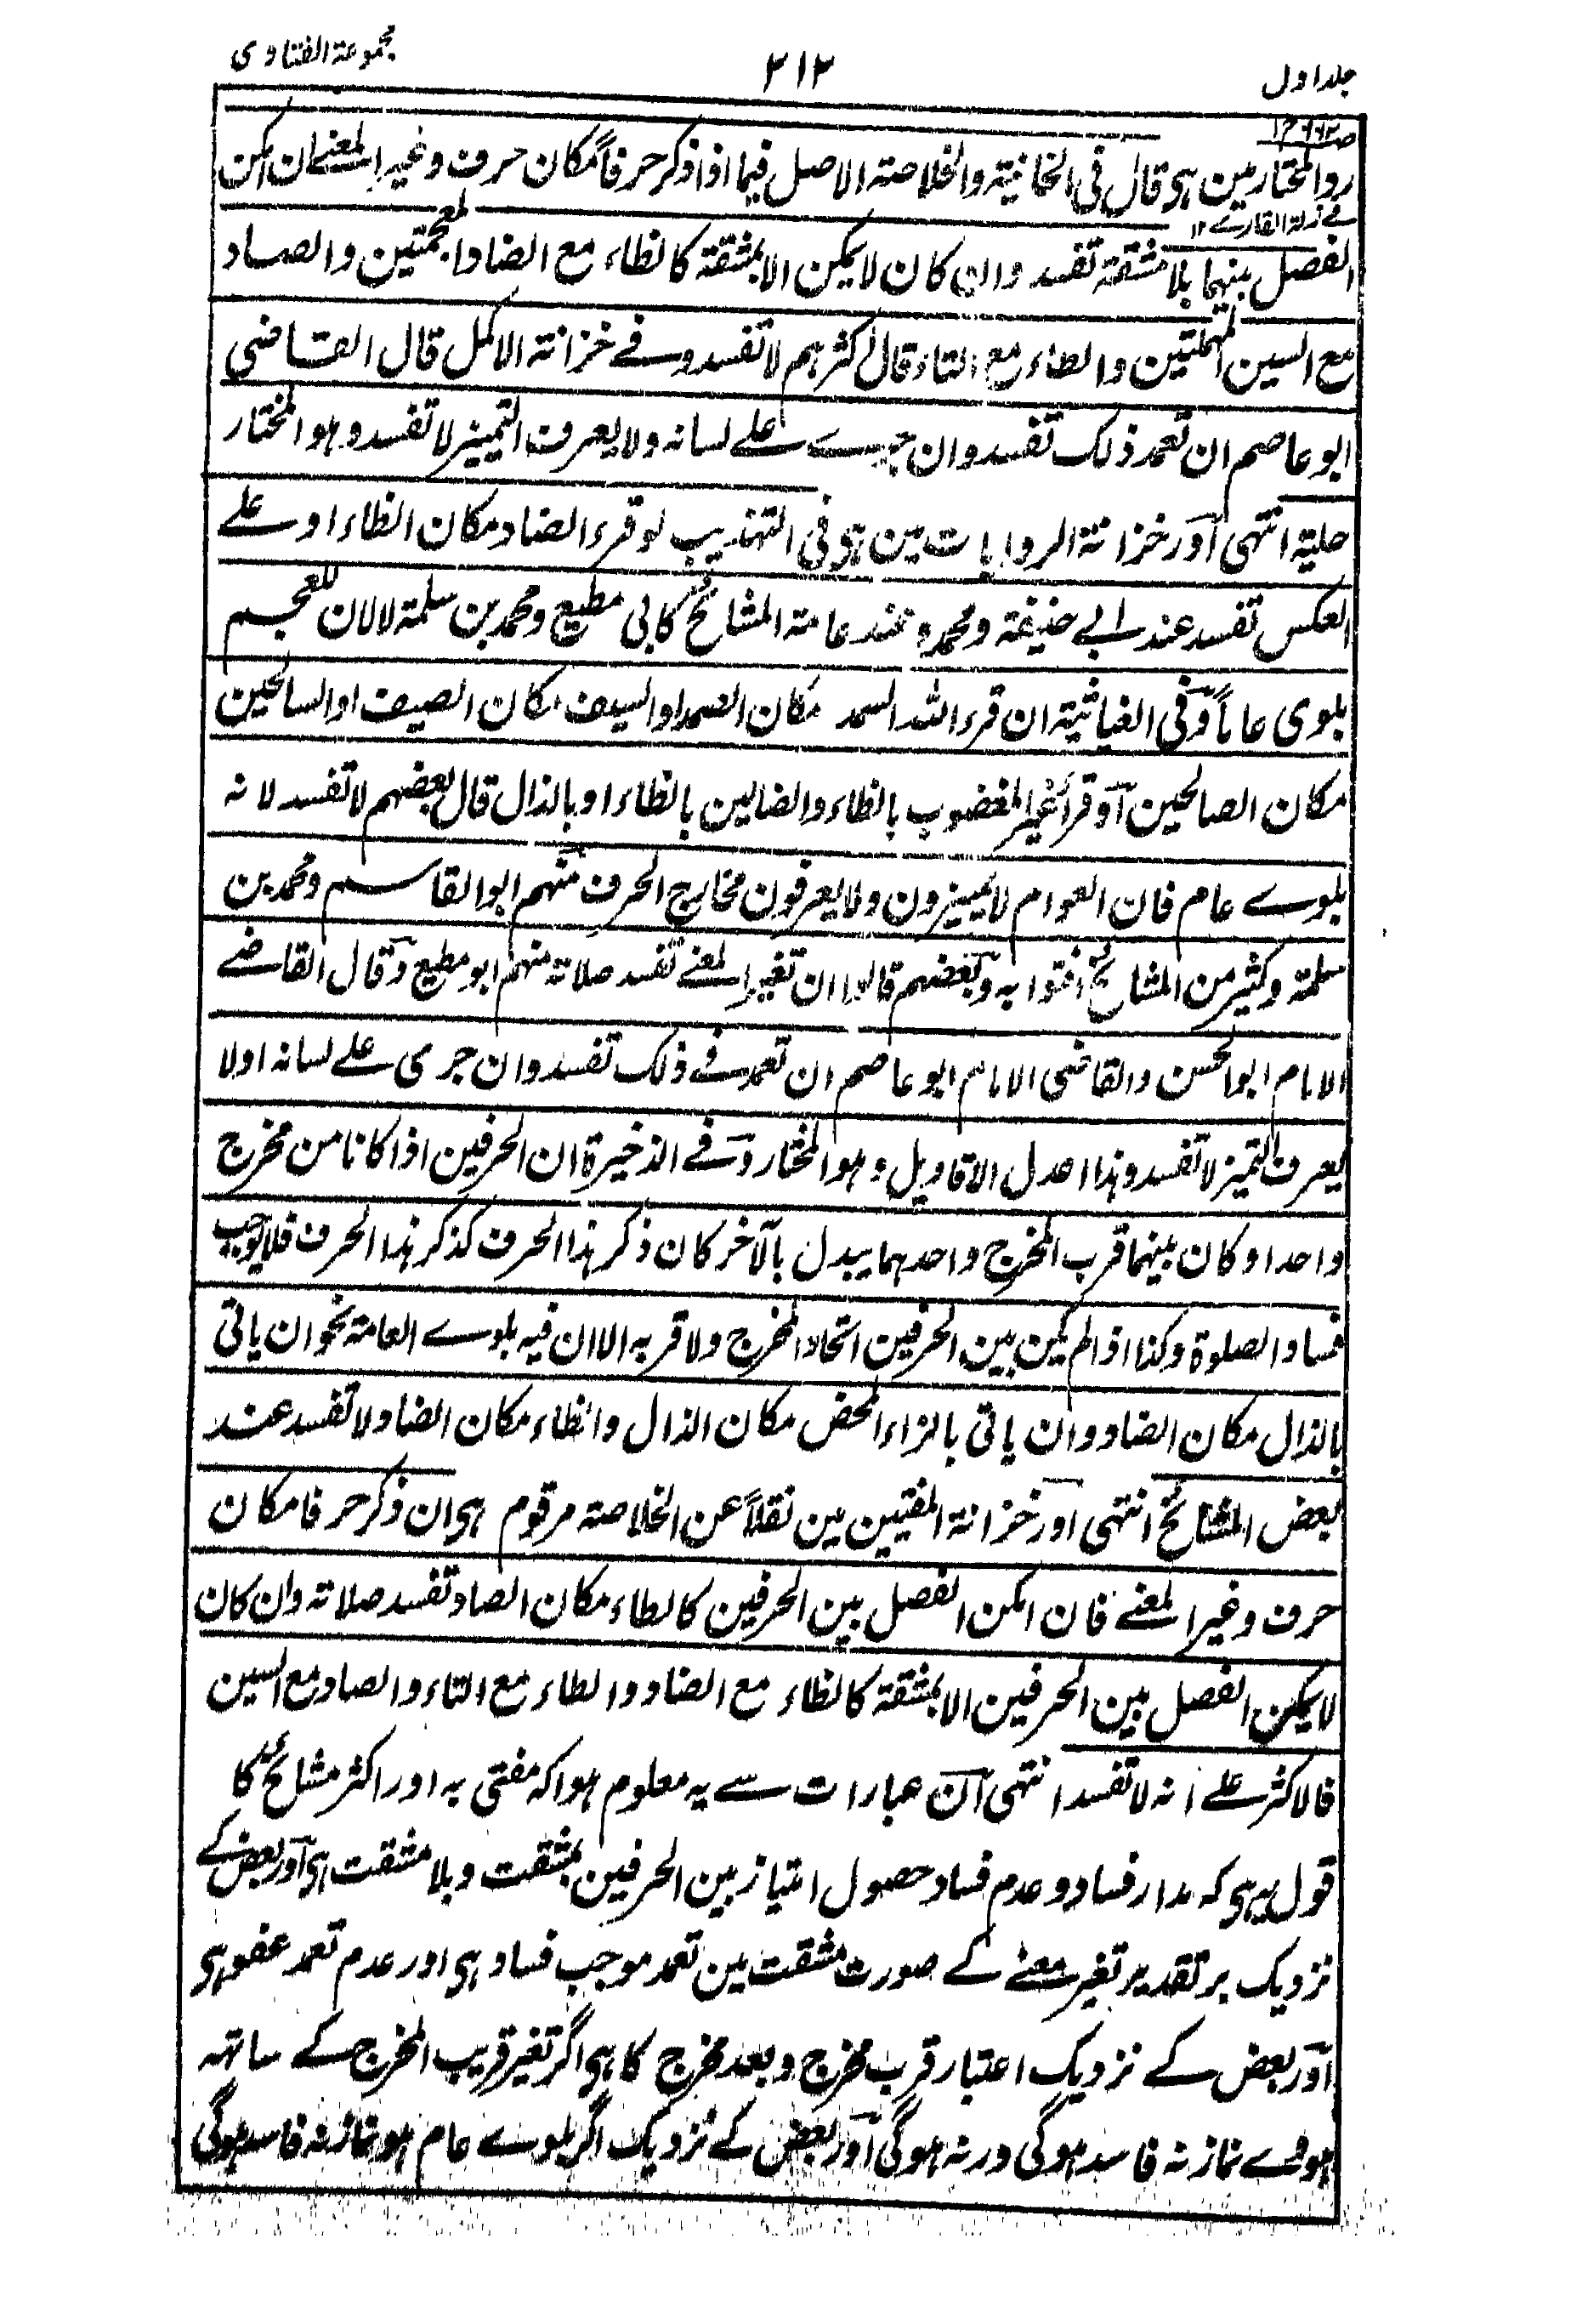 جلد اول
۲۱۲
مجموعۃ الفتاوی
ردالمختار مین ہی قال فی الخانیۃ والخلاصۃ الاصل فیما اذا ذکر حرفاً مکان حرف وغیر المعنے ان امکن
فے زلۃ القارے ۱۲
الفصل بینہما بلا مشقۃ تفسد وان کان لا یمکن الا بمشقۃ کالظاء مع الضاد المعجمتین والصاد
مع السین المہملتین والطاء مع التاء قال اکثرہم لا تفسد وفے خزانۃ الاکمل قال القاضی
ابو عاصم ان تعمد ذلک تفسد وان جرے علے لسانہ ولا یعرف التمییز لا تفسد وہو المختار
حلیۃ انتہی اور خزانۃ الروایات مین ہی فی التہذیب لو قرء الضاد مکان الظاء او علے
العکس تفسد عند ابے حنیفۃ ومحمد وعند عامۃ المشائخ کابی مطیع ومحمد بن سلمۃ لا لان للعجم
بلوی عاماً وفی الغیاثیۃ ان قرء اللہ السمد مکان الصمد او السیف مکان الصیف او السالحین
مکان الصالحین او قرأ غیر المغضوب بالظاء والضالین بالظاء او بالذال قال بعضہم لا تفسد لانہ
بلوے عام فان العوام لا یمیزون ولا یعرفون مخارج الحرف منہم ابو القاسم ومحمد بن
سلمۃ وکثیر من المشائخ افتوا بہ وبعضہم قالوا ان تغیر المعنے تفسد صلاتہ منہم ابو مطیع وقال القاضے
الامام ابو الحسن والقاضی الامام ابو عاصم ان تعمد فے ذلک تفسد وان جری علے لسانہ او لا
یعرف التمیز لا تفسد وہذا اعدل الاقاویل وہو المختار وفے الذخیرۃ ان الحرفین اذا کانا من مخرج
واحد او کان بینہما قرب المخرج واحدہما یبدل بالآخر کان ذکر ہذا الحرف کذکر ہذا الحرف فلا یوجب
فساد الصلوۃ وکذا اذا لم یکن بین الحرفین اتحاد المخرج ولا قربہ الا ان فیہ بلوے العامۃ نحو ان یاتی
بالذال مکان الضاد وان یاتی بالزاء المحض مکان الذال والظاء مکان الضاد لا تفسد عند
بعض المشائخ انتہی اور خزانۃ المفتیین مین نقلاً عن الخلاصۃ مرقوم ہی ان ذکر حرفا مکان
حرف وغیر المعنے فان امکن الفصل بین الحرفین کالطاء مکان الصاد تفسد صلاتہ وان کان
لا یمکن الفصل بین الحرفین الا بمشقۃ کالظاء مع الضاد والطاء مع التاء والصاد مع السین
فالاکثر علے انہ لا تفسد انتہی ان عبارات سے یہ معلوم ہوا کہ مفتی بہ اور اکثر مشائخ کا
قول یہ ہی کہ مدار فساد وعدم فساد حصول امتیاز بین الحرفین بمشقت وبلا مشقت ہی اور بعض کے
نزدیک برتقدیر تغیر معنے کے صورت مشقت مین تعمد موجب فساد ہی اور عدم تعمد عفو ہی
اور بعض کے نزدیک اعتبار قرب مخرج وبعد مخرج کا ہی اگر تغیر قریب المخرج کے ساتھ
ہووے نماز نہ فاسد ہوگی ورنہ ہوگی اور بعض کے نزدیک اگر بلوے عام ہو نماز نہ فاسد ہوگی